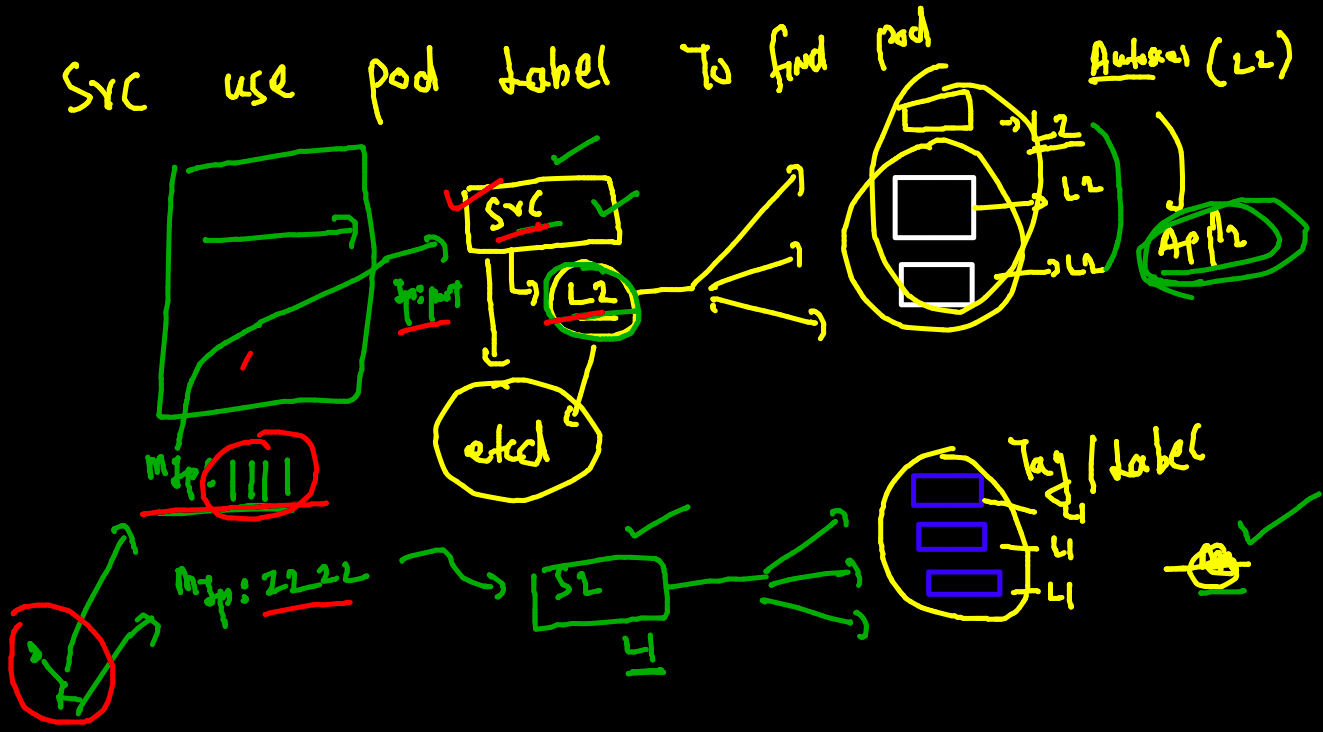 Svc use pod Label To find pod
(L2)
L2
Svc
L2
L2
App2
Ip:port
L2
etcd
MIp: 1111
Tag/Label
L1
L1
L1
MIp: 2222
S2
L1